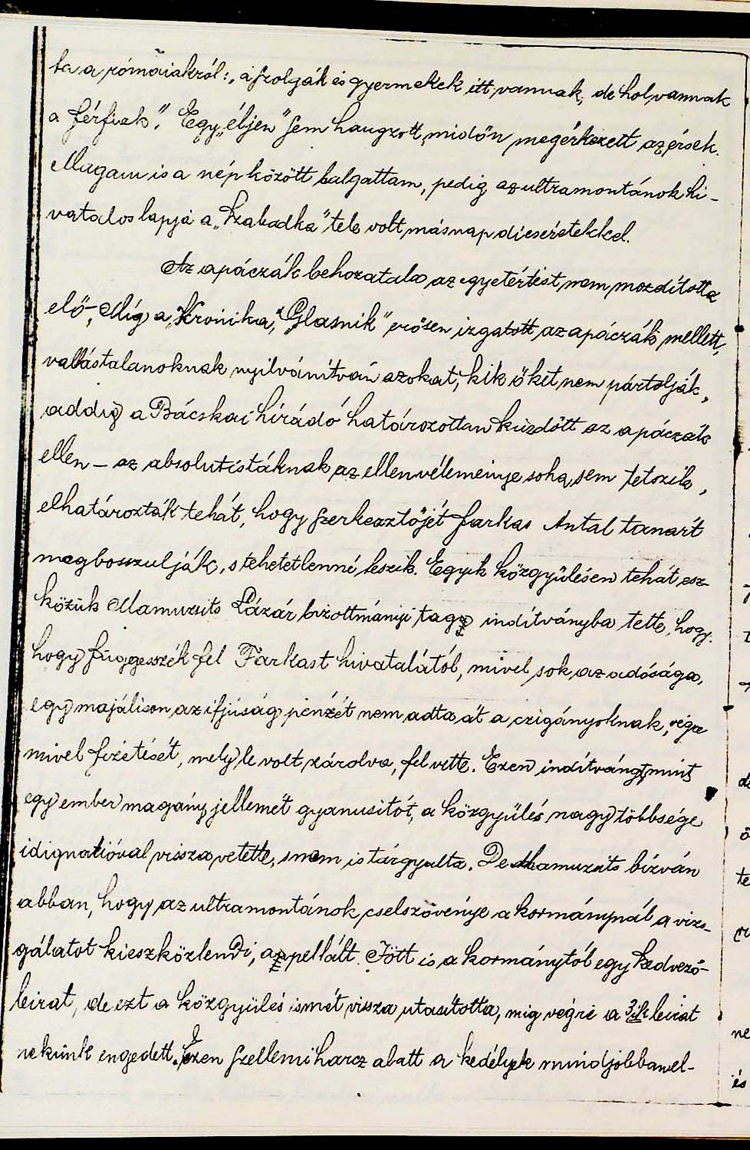 ta a rómaiakról: „a szolgák és gyermekek itt vannak, de hol vannak
a férfiak". Egy „éljen" sem hangzott, midőn megérkezett az érsek.
Magam is a nép között balgattam, pedig az ultramontánok hi-
vatalos lapja a „Szabadka" tele volt, másnap dicséretekkel.
Az apáczák behozatala az egyetértést, nem mozdította
elő, Míg a „Kronika, „Glasnik" erősen izgatott az apáczák mellett,
vallástalanoknak nyilvánítván azokat, kik őket nem pártolják,
addig a Bácskai hiradó határozottan küzdött az apáczák
ellen – az absolutistáknak az ellenvéleménye soha sem tetszik,
elhatározták tehát, hogy szerkesztőjét Farkas Antal tanárt
megbosszulják, s tehetetlenné teszik. Egyik közgyülésen tehát esz-
közük Mamuzsits Lázár bizottmányi tag indítványba tette, hogy
hogy függesszék fel Farkast hivatalától, mivel sok az adósága,
egy majálison az ifjúság pénzét nem adta át a czigányoknak, végre
mivel fizetését, mely le volt zárolva, fel vette. Ezen indítványt, mint
egy ember magány jellemét gyanusitót, a közgyülés nagy többsége
idignatióval vissza vetette, s nem is tárgyalta. De Mamuzsits bízván
abban, hogy az ultramontánok cselszövénye a kormánynál a vizs-
gálatot kieszközlendi, appellált. Jött is a kormánytól egy kedvező
leirat, de ezt a közgyülés ismét vissza utasította, mig végre a 3ik leirat
nekünk engedett. Ezen szellemi harcz alatt a kedélyek mind jobban el-